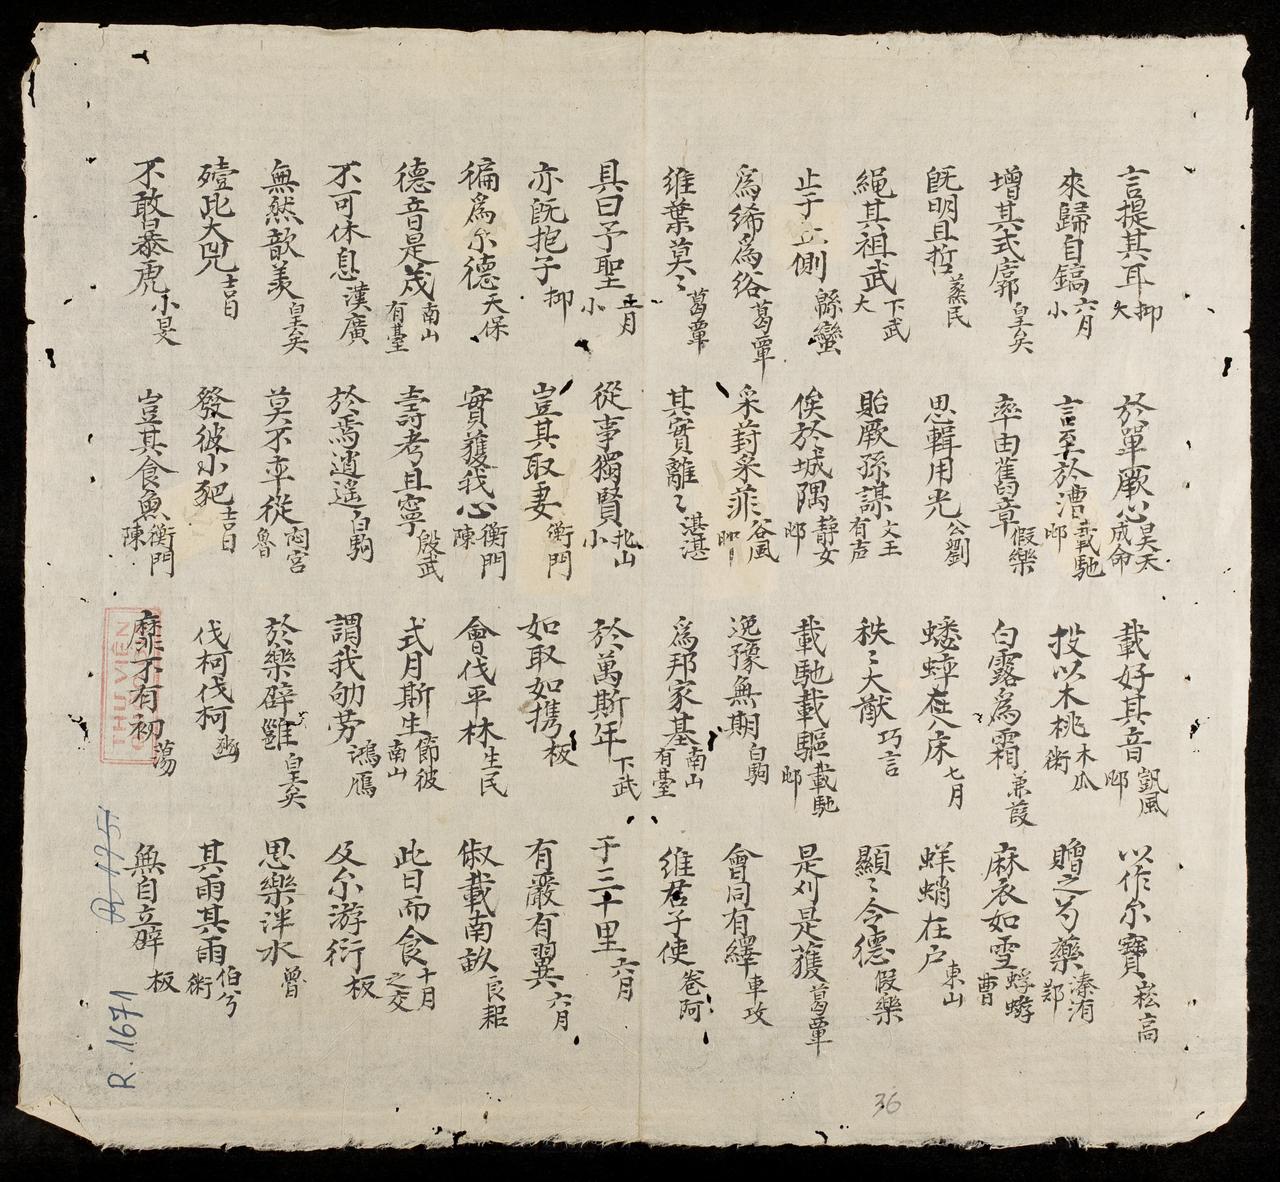 言提其耳 抑 大 於單厥心 昊天成命 載好其音 凱風 邶 以作尔寶 崧高
來歸自鎬 六月 小 言至於漕 載馳 邶 投以木桃 木瓜 衛 贈之芍藥 溱洧 鄭
增其式廓 皇矣 率由舊章 假樂 白露為霜 蒹葭 麻衣如雪 蜉蝣 曹
旣明且哲 蒸民 思輯用光 公劉 蟋蟀在床 七月 蛘蛸在户 東山
繩其祖武 下武 大 貽厥孫謀 文王有声 秩〻大猷 巧言 顯〻令德 假樂
止于丘側 緜蠻 俟於城隅 靜女 邶 載馳載驅 載馳 邶 是刈是獲 葛覃
為絺為綌 葛覃 采葑采菲 谷風 邶 逸豫無期 白駒 會同有繹 車攻
維葉莫〻 葛覃 其實離〻 湛湛 為邦家基 南山有臺 維君子使 卷阿
具曰予聖 正月 小 從事獨賢 北山 小 於萬斯年 下武 于三十里 六月
亦旣抱子 抑 豈其取妻 衡門 如取如携 板 有嚴有翼 六月
徧為尔德 天保 實獲我心 衡門 陳 會伐平林 生民 俶載南畝 良耜
德音是茂 南山有臺 壽考且寧 殷武 式月斯生 節彼南山 此日而食 十月之交
不可休息 漢廣 於焉逍遙 白駒 謂我劬劳 鴻鴈 及尔游衍 板
無然歆羡 皇矣 莫不率從 閟宮 魯 於樂辟雝 皇矣 思樂泮水 魯
殪此大兕 吉日 發彼小豝 吉日 伐柯伐柯 豳 其雨其雨 伯兮 衛
不敢暴虎 小旻 豈其食魚 衡門 陳 靡不有初 蕩 無自立辟 板
THU VIEN
R.1671
36